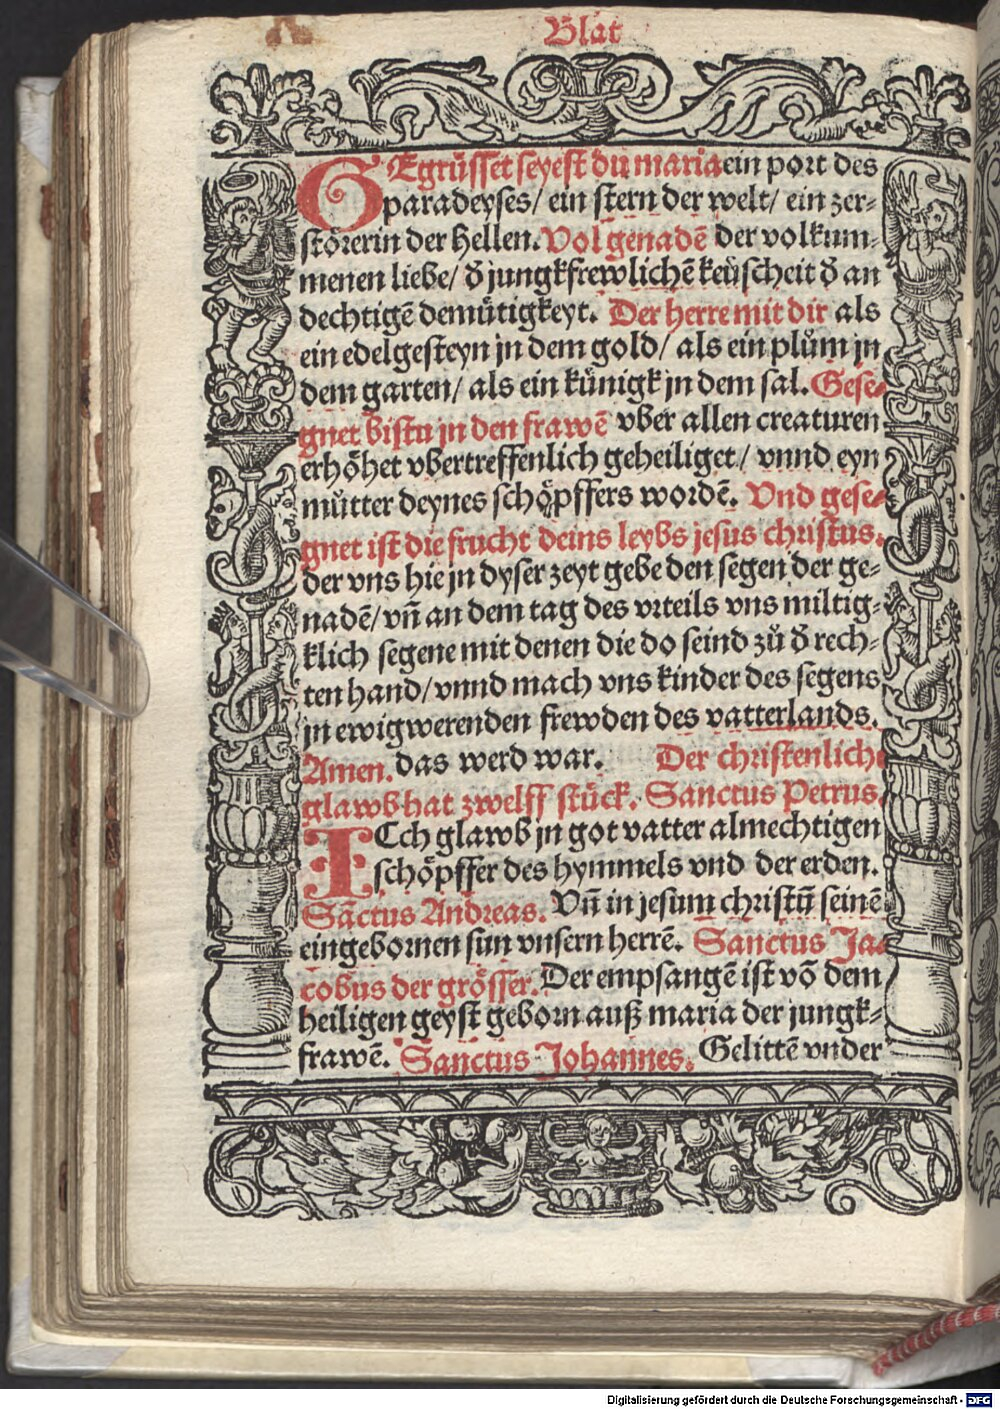 Blat
GEgrüsset seyest du maria ein port des
paradeyses/ ein stern der welt/ ein zer⸗
störerin der hellen. Vol genadē der volkum⸗
menen liebe/ d̄ jungkfrewlichē keüscheit d̄ an
dechtigē demütigkeyt. Der herre mit dir als
ein edelgesteyn jn dem gold/ als ein plům jn
dem garten/ als ein künigk jn dem sal. Gese⸗
gnet bistu jn den frawē vber allen creaturen
erhöhet vbertreffenlich geheiliget/ vnnd eyn
můtter deynes schöpffers wordē. Vnd gese⸗
gnet ist die frucht deins leybs jesus christus.
der vns hie jn dyser zeyt gebe den segen der ge⸗
nadē/ vn̄ an dem tag des vrteils vns miltig⸗
klich segene mit denen die do seind zů d̄ rech⸗
ten hand/ vnnd mach vns kinder des segens
jn ewigwerenden frewden des vatterlands.
Amen. das werd war. Der christenlich
glawb hat zwelff stück. Sanctus Petrus.
ICch glawb jn got vatter almechtigen
schöpffer des hymmels vnd der erden.
Sāctus Andreas. Vn̄ in jesum christū seinē
eingebornen sun vnsern herrē. Sanctus Ja⸗
cobus der grösser. Der empfangē ist vō dem
heiligen geyst geborn auß maria der jungk⸗
frawē. Sanctus Johannes. Gelittē vnder
Digitalisierung gefördert durch die Deutsche Forschungsgemeinschaft - DFG